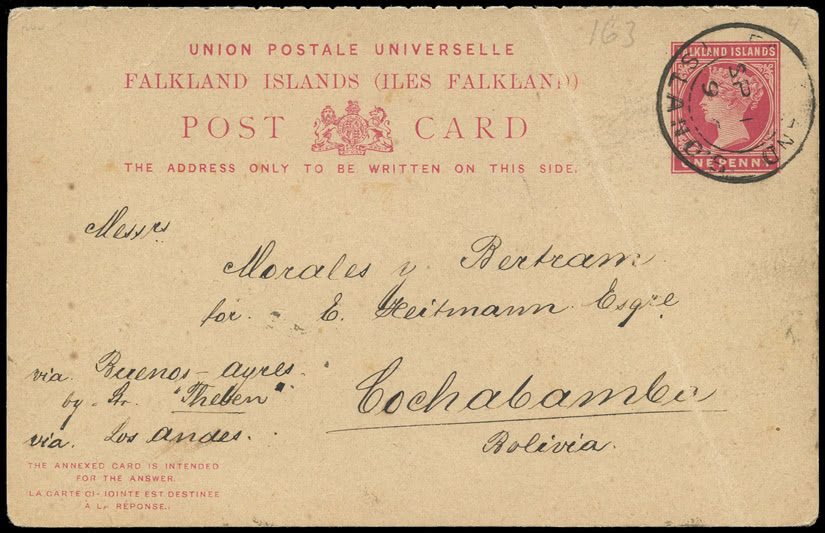 163
UNION POSTALE UNIVERSELLE
FALKLAND ISLANDS (ILES FALKLAND)
POST CARD
THE ADDRESS ONLY TO BE WRITTEN ON THIS SIDE.
FALKLAND ISLANDS
NE PENNY
ISLANDS
Messrs
Morales y Bertram
for. E. Heitmann Esqre
via. Buenos-ayres.
by. Str. "Theben"
via. Los andes.
Cochabamba
Bolivia.
THE ANNEXED CARD IS INTENDED
FOR THE ANSWER.
LA CARTE CI-JOINTE EST DESTINÉE
À LA RÉPONSE.